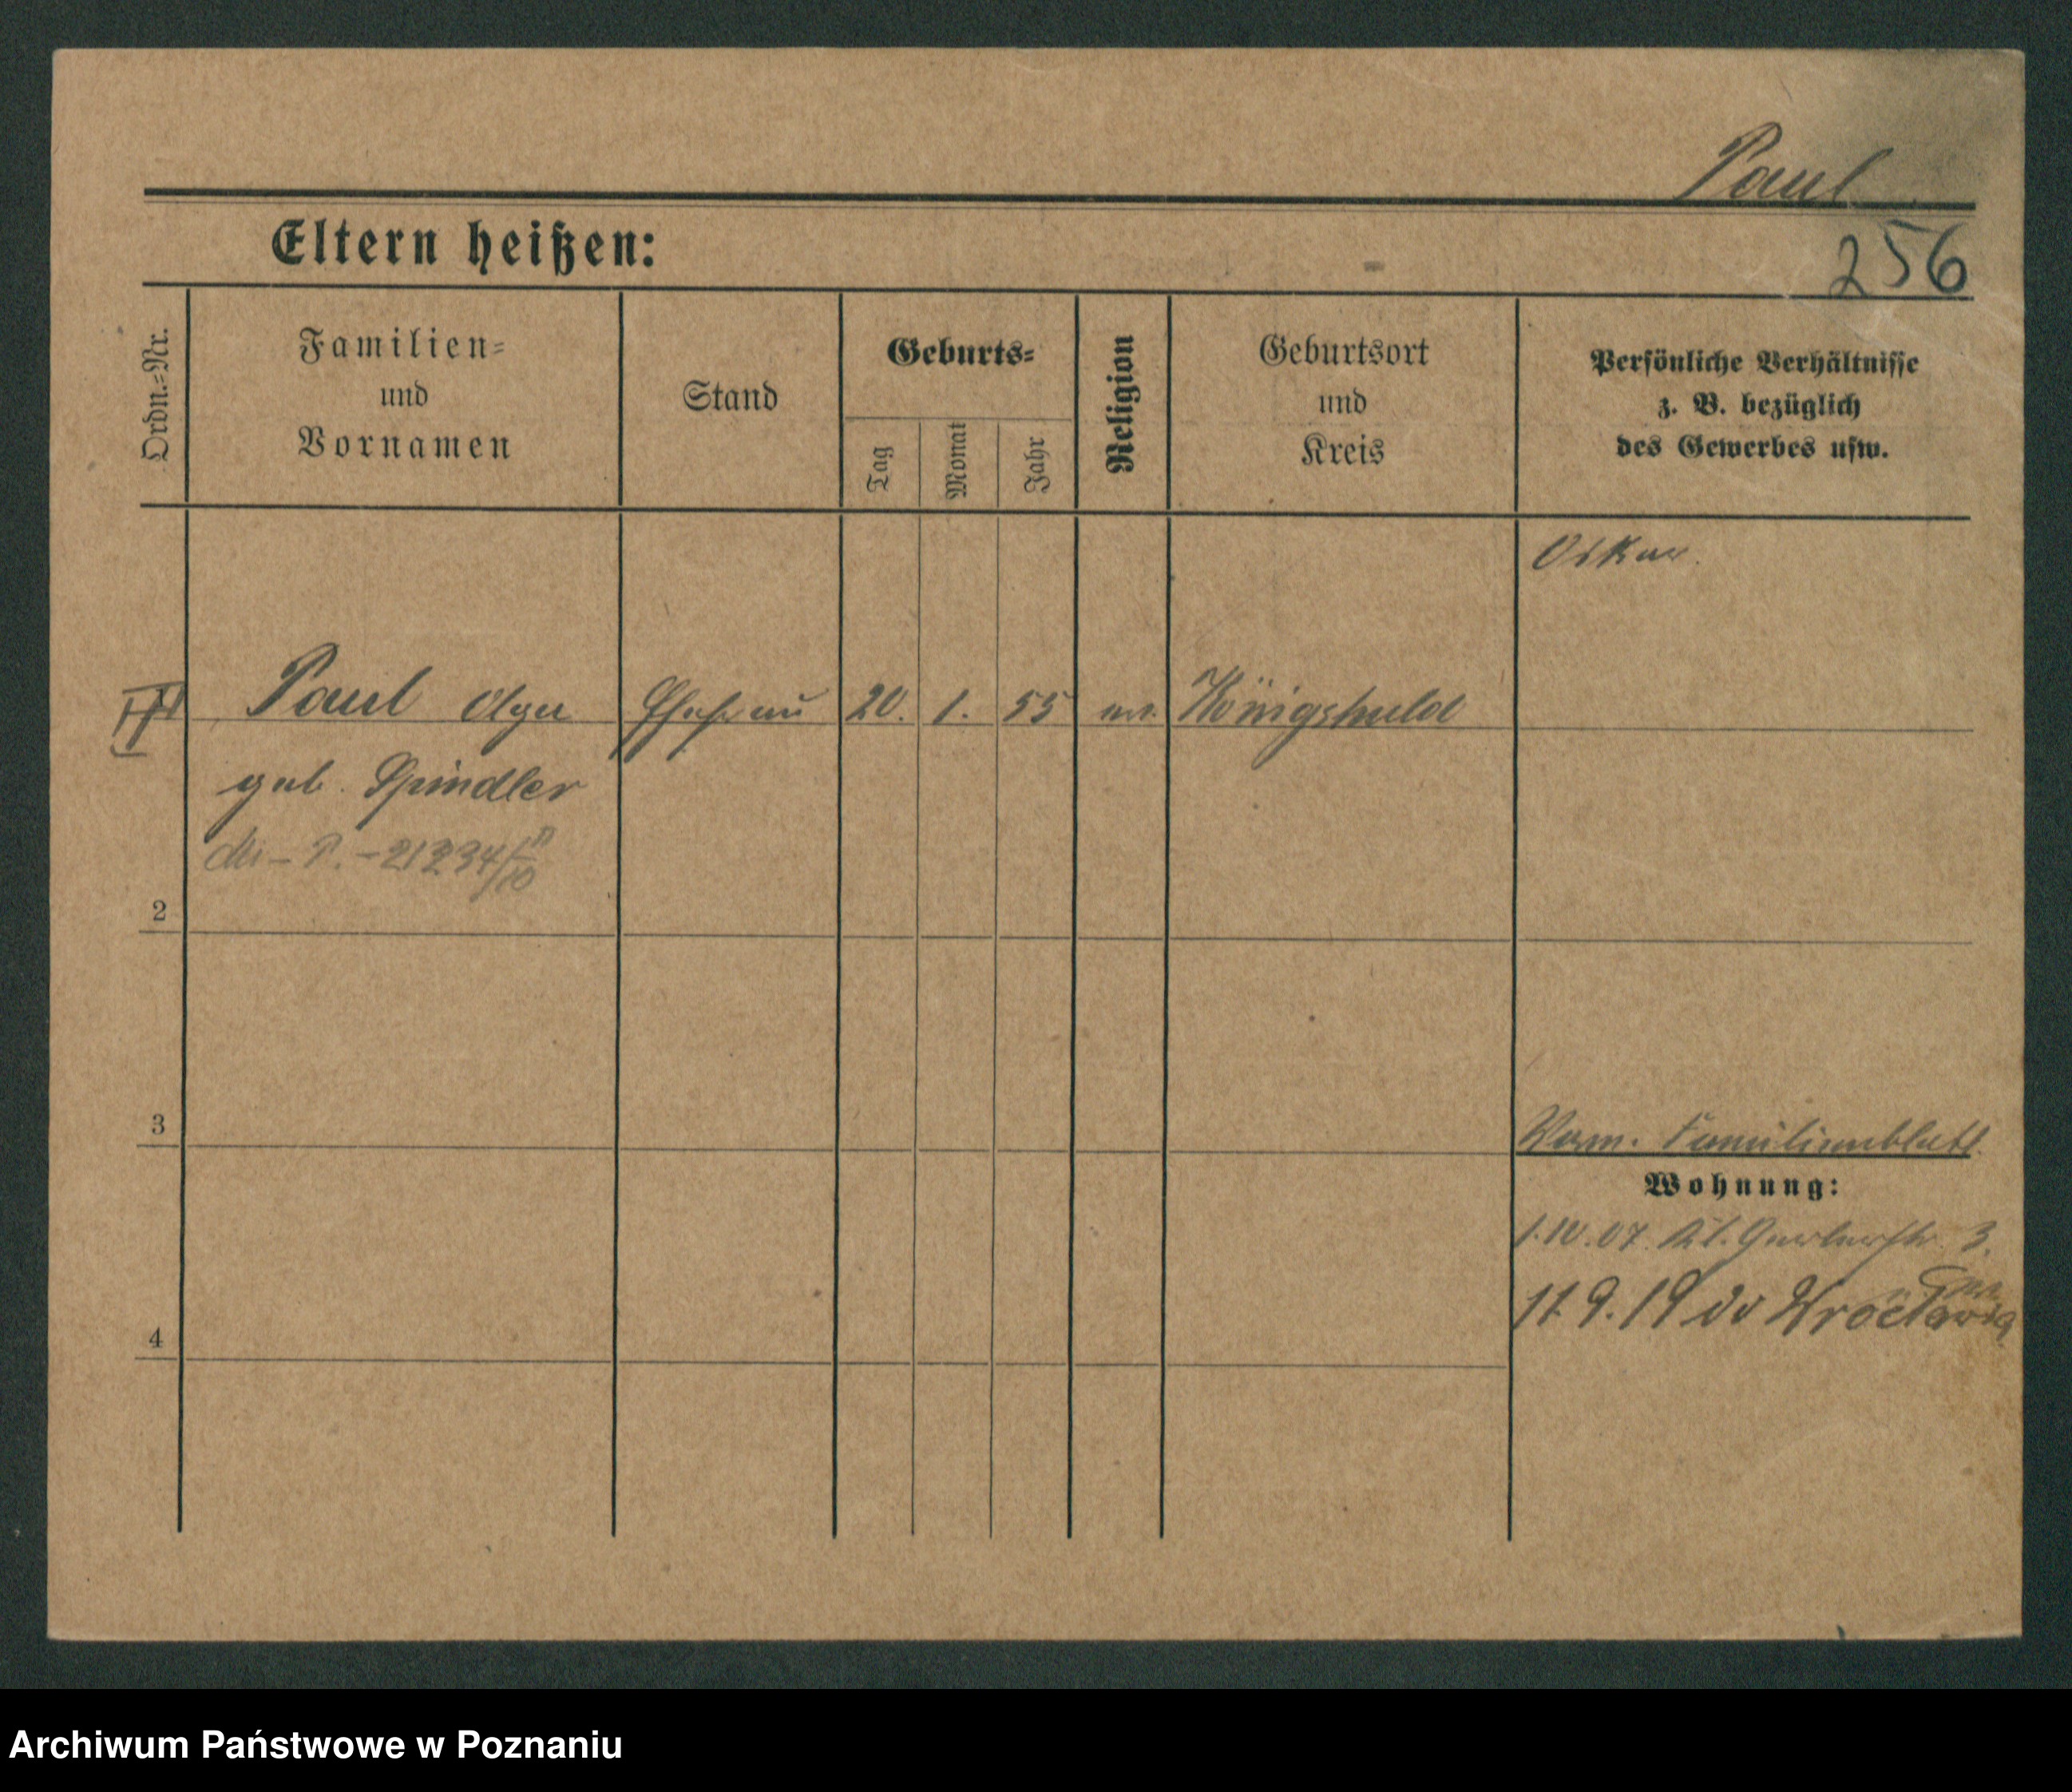 Paul
Eltern heißen:
256
Ordn.=Nr.
Familien=
und
Vornamen
Stand
Geburts=
Tag
Monat
Jahr
Religion
Geburtsort
und
Kreis
Persönliche Verhältnisse
z. B. bezüglich
des Gewerbes usw.
Oskar.
Paul Olga Ehefrau 20. 1. 55 ev. Königshuld
geb. Spindler
2
3
Vorm. Familienblatt
Wohnung:
1.10.07. Kl. Gerberstr. 3.
11.9.19 do Wrocławia
4
Archiwum Państwowe w Poznaniu